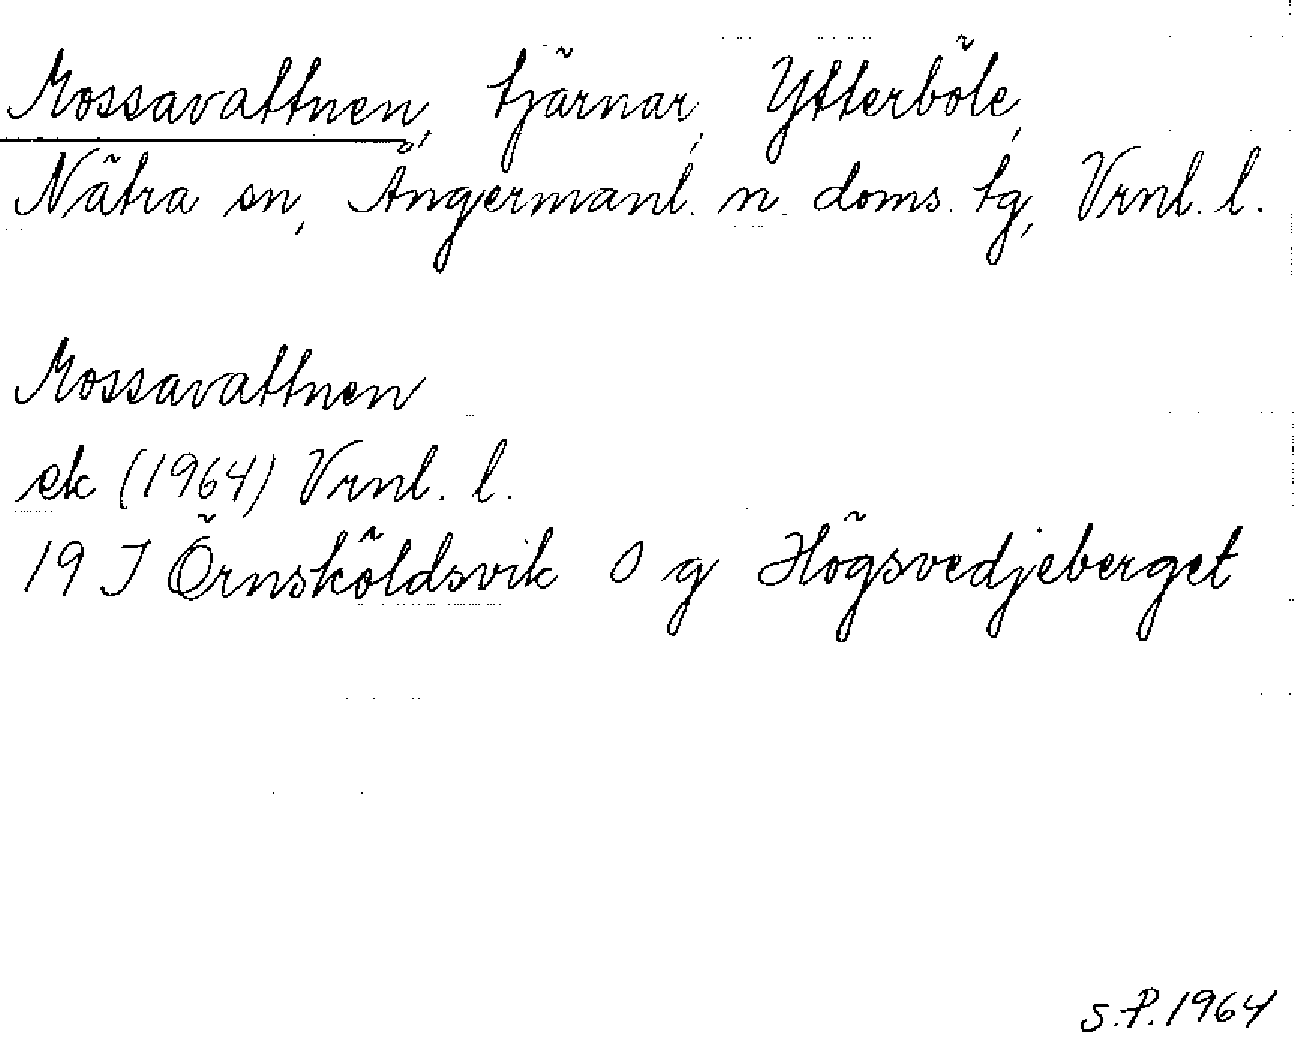 Mossavattnen, tjärnar, Ytterböle,
Nätra sn, Ångermanl. n. doms. tg, Vrnl. l.
Mossavattnen
ek (1964) Vrnl. l.
19 I Örnsköldsvik O g Högsvedjeberget
S.P. 1964